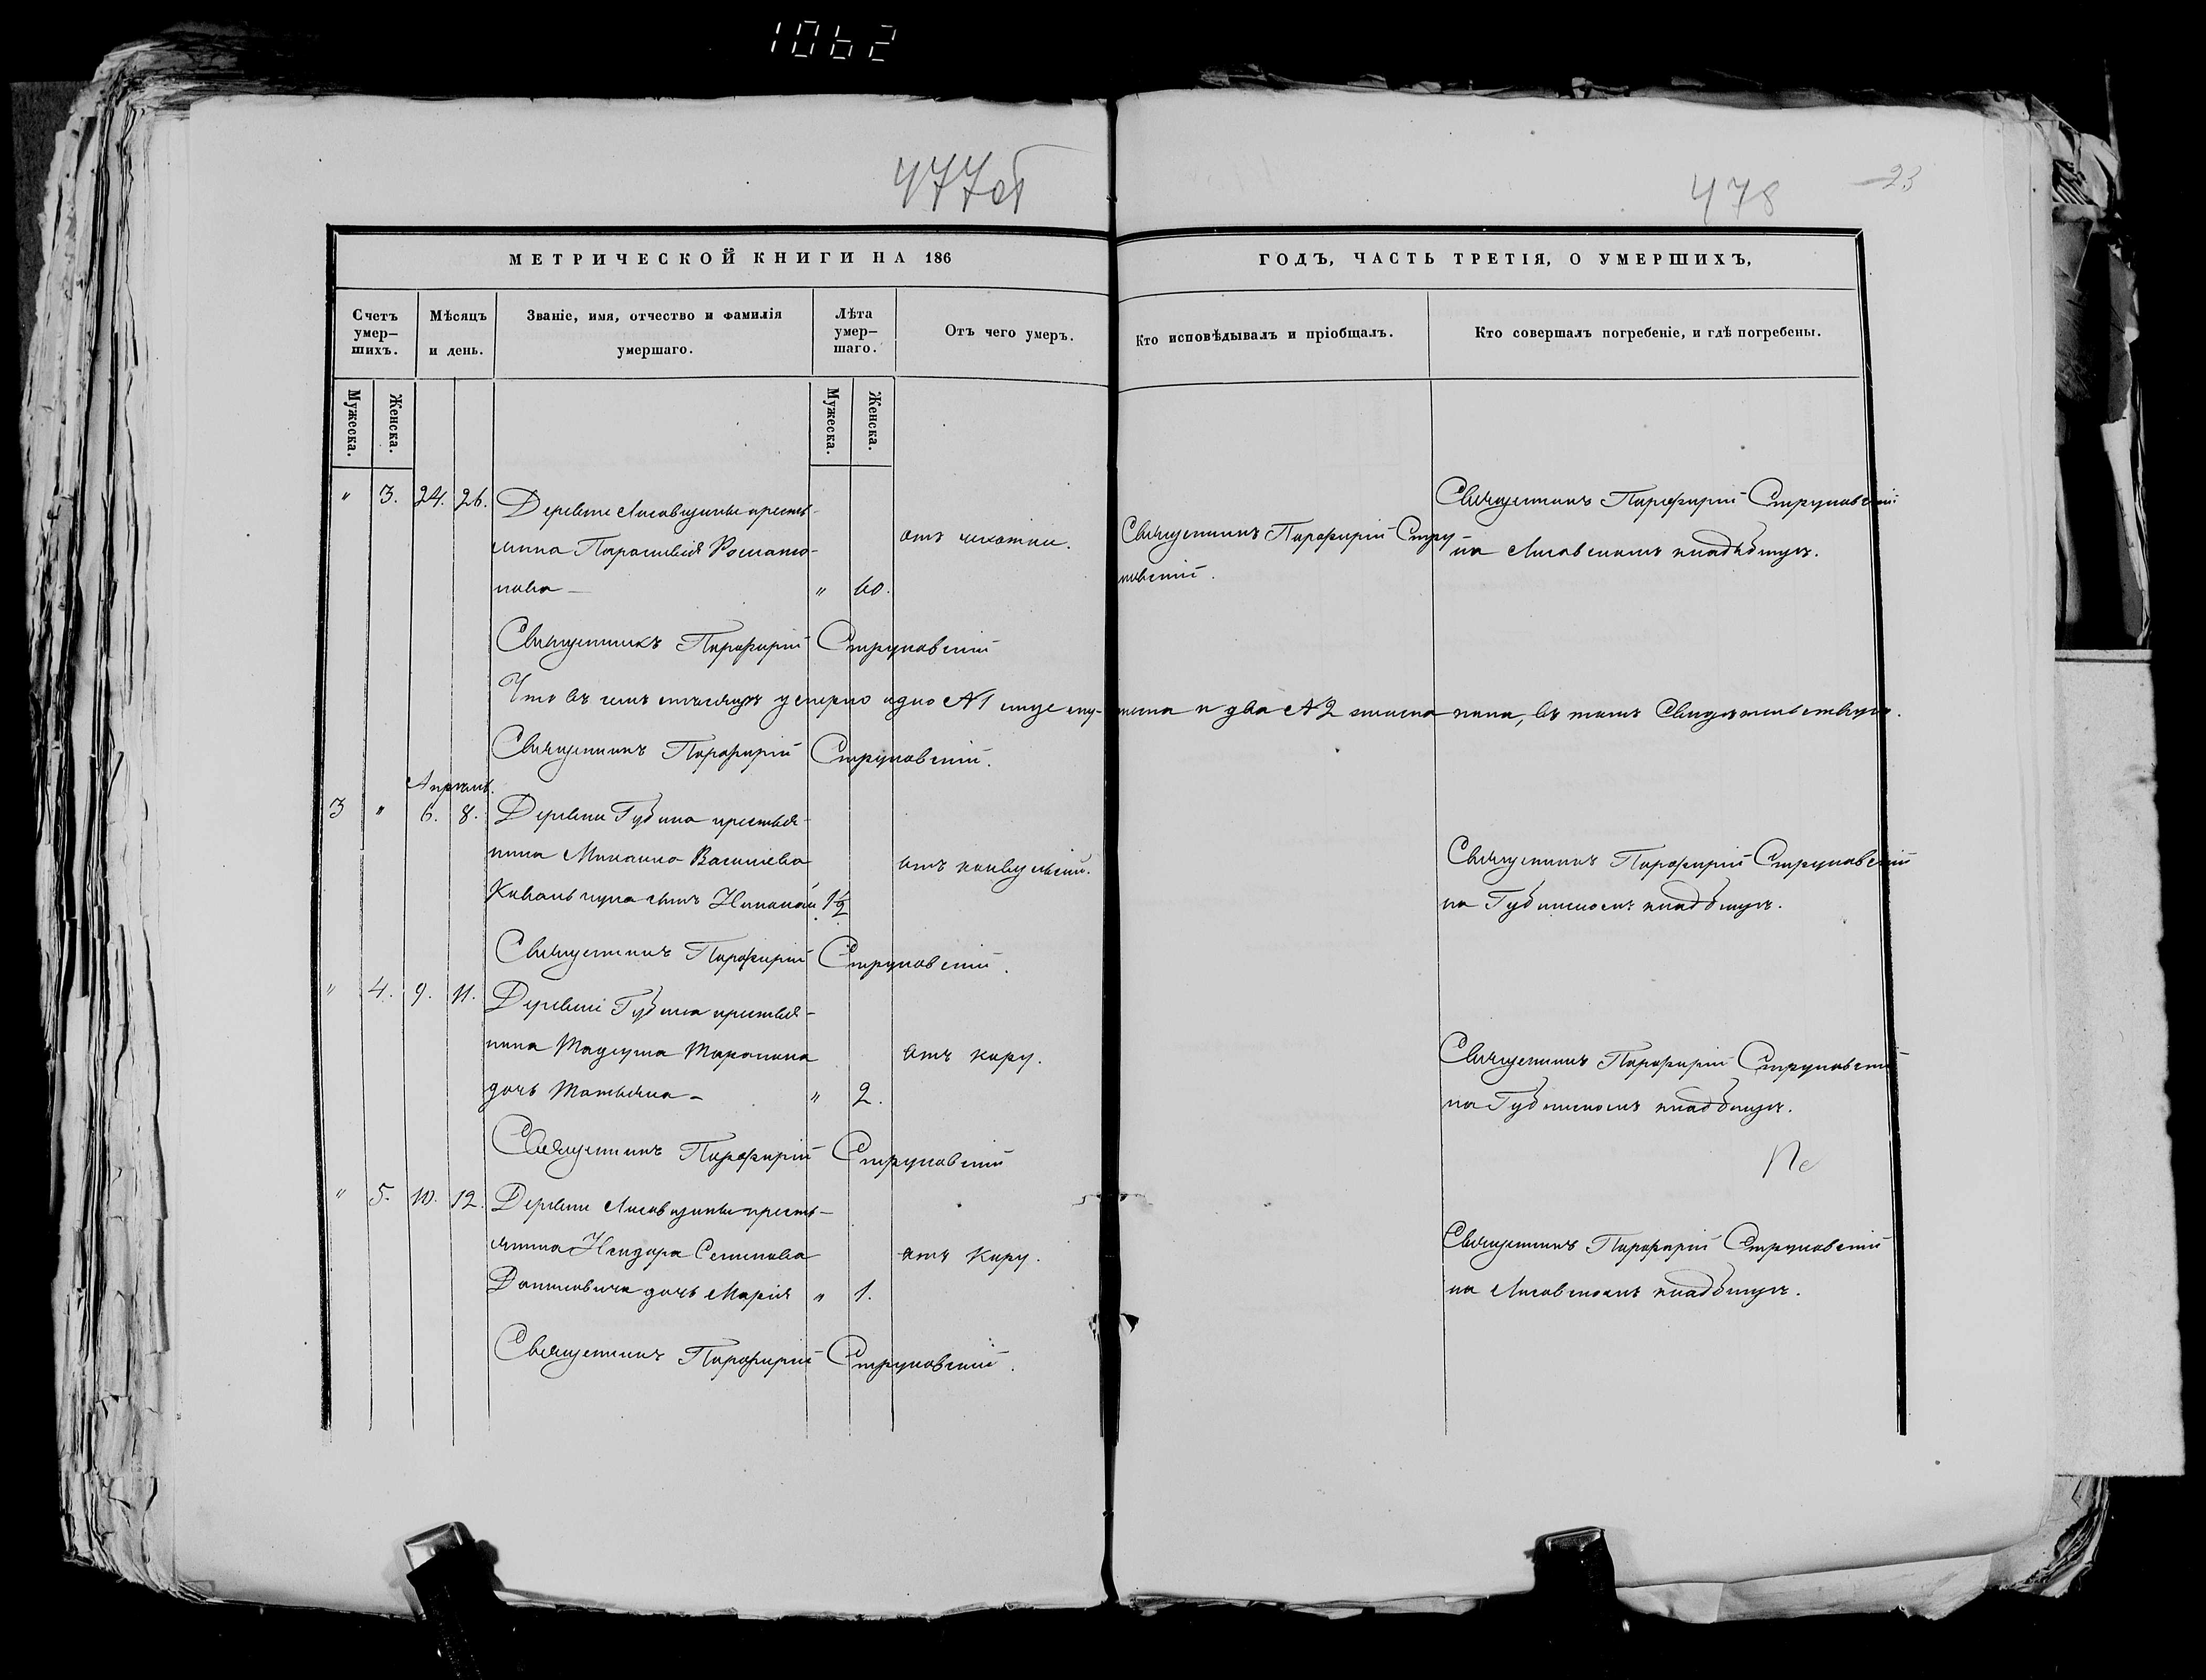 1062
477об
478
23
МЕТРИЧЕСКОЙ КНИГИ НА 186
ГОДЪ, ЧАСТЬ ТРЕТІЯ, О УМЕРШИХЪ,
Счетъ умер-шихъ.
Мѣсяцъ и день.
Званіе, имя, отчество и фамилія умершаго.
Лѣта умер-шаго.
Отъ чего умеръ.
Кто исповѣдывалъ и пріобщалъ.
Кто совершалъ погребеніе, и гдѣ погребены.
Мужеска.
Женска.
Мужеска.
Женска.
" 3. 24. 26. Деревни Лисовщины кресть-
янка Параскевія
" 60.
отъ чахотки.
Священникъ Парфирій Стру-
ковскій.
Священникъ Парфирій Струковскій
на Лисовскомъ кладбищѣ.
Священникъ Парфирій Струковскій
Что въ семъ мѣсяцѣ умерло одно № 1 лице му-жеска и два № 2 женска пола, въ томъ Свидѣтельствую.
Священникъ Парфирій Струковскій.
Апрѣль.
3 " 6. 8. Деревни Губина крестья-
нина Михаила Василіева
Ковальчука сынъ Николай 1½
отъ конвульсій.
Священникъ Парфирій Струковскій
на Губинскомъ кладбищѣ.
Священникъ Парфирій Струковскій.
" 4. 9. 11. Деревни Губина крестья-
нина
дочь Татьяна – " 2.
отъ кору.
Священникъ Парфирій Струковскій
на Губинскомъ кладбищѣ.
Священникъ Парфирій Струковскій
" 5. 10. 12. Деревни Лисовщины кресть-
янина Исидора Семенова
Даниловича дочь Марія " 1.
отъ кору.
Священникъ Парфирій Струковскій
на Лисовскомъ кладбищѣ.
Священникъ Парфирій Струковскій.